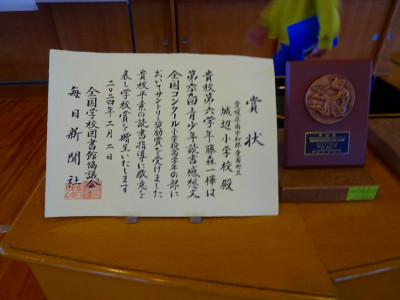 賞状
愛媛県南宇和郡愛南町立
城辺小学校殿
貴校第六学年藤森一樺は
第六九回青少年読書感想文
全国コンクール小学校高学年の部に
おいてサントリー奨励賞を受けました
貴校平素の読書指導に敬意を
表し学校賞を贈呈いたします
二〇二四年二月二日
全国学校図書館協議会
毎日新聞社